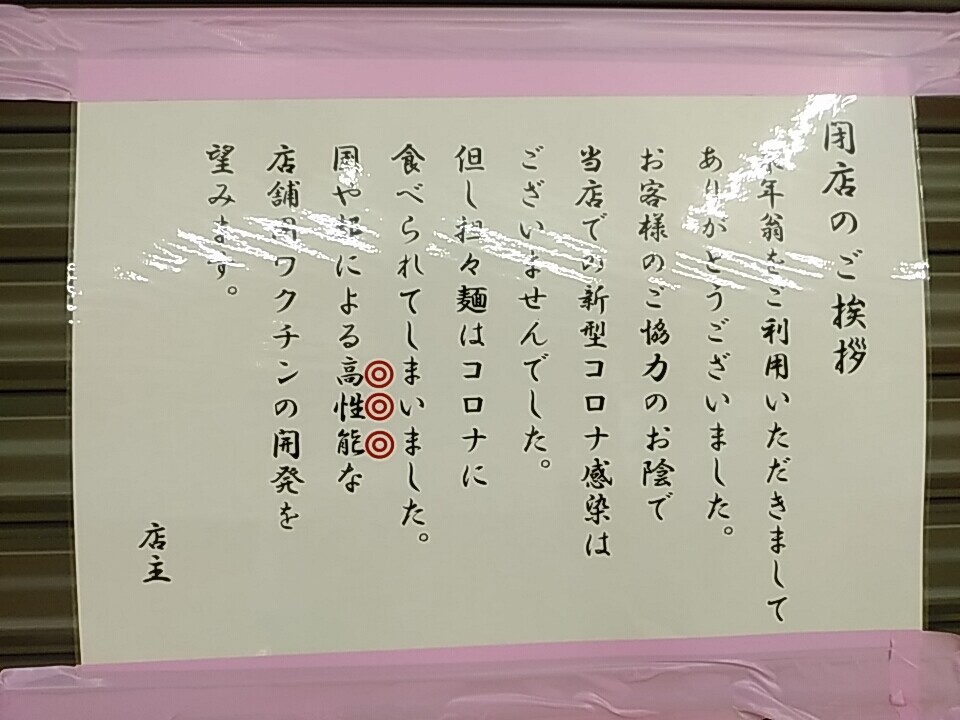 閉店のご挨拶
年翁をご利用いただきまして
ありがとうございました。
お客様のご協力のお陰で
当店での新型コロナ感染は
ございませんでした。
但し担々麺はコロナに
食べられてしまいました。
国や都による高性能な
店舗用ワクチンの開発を
望みます。
店主